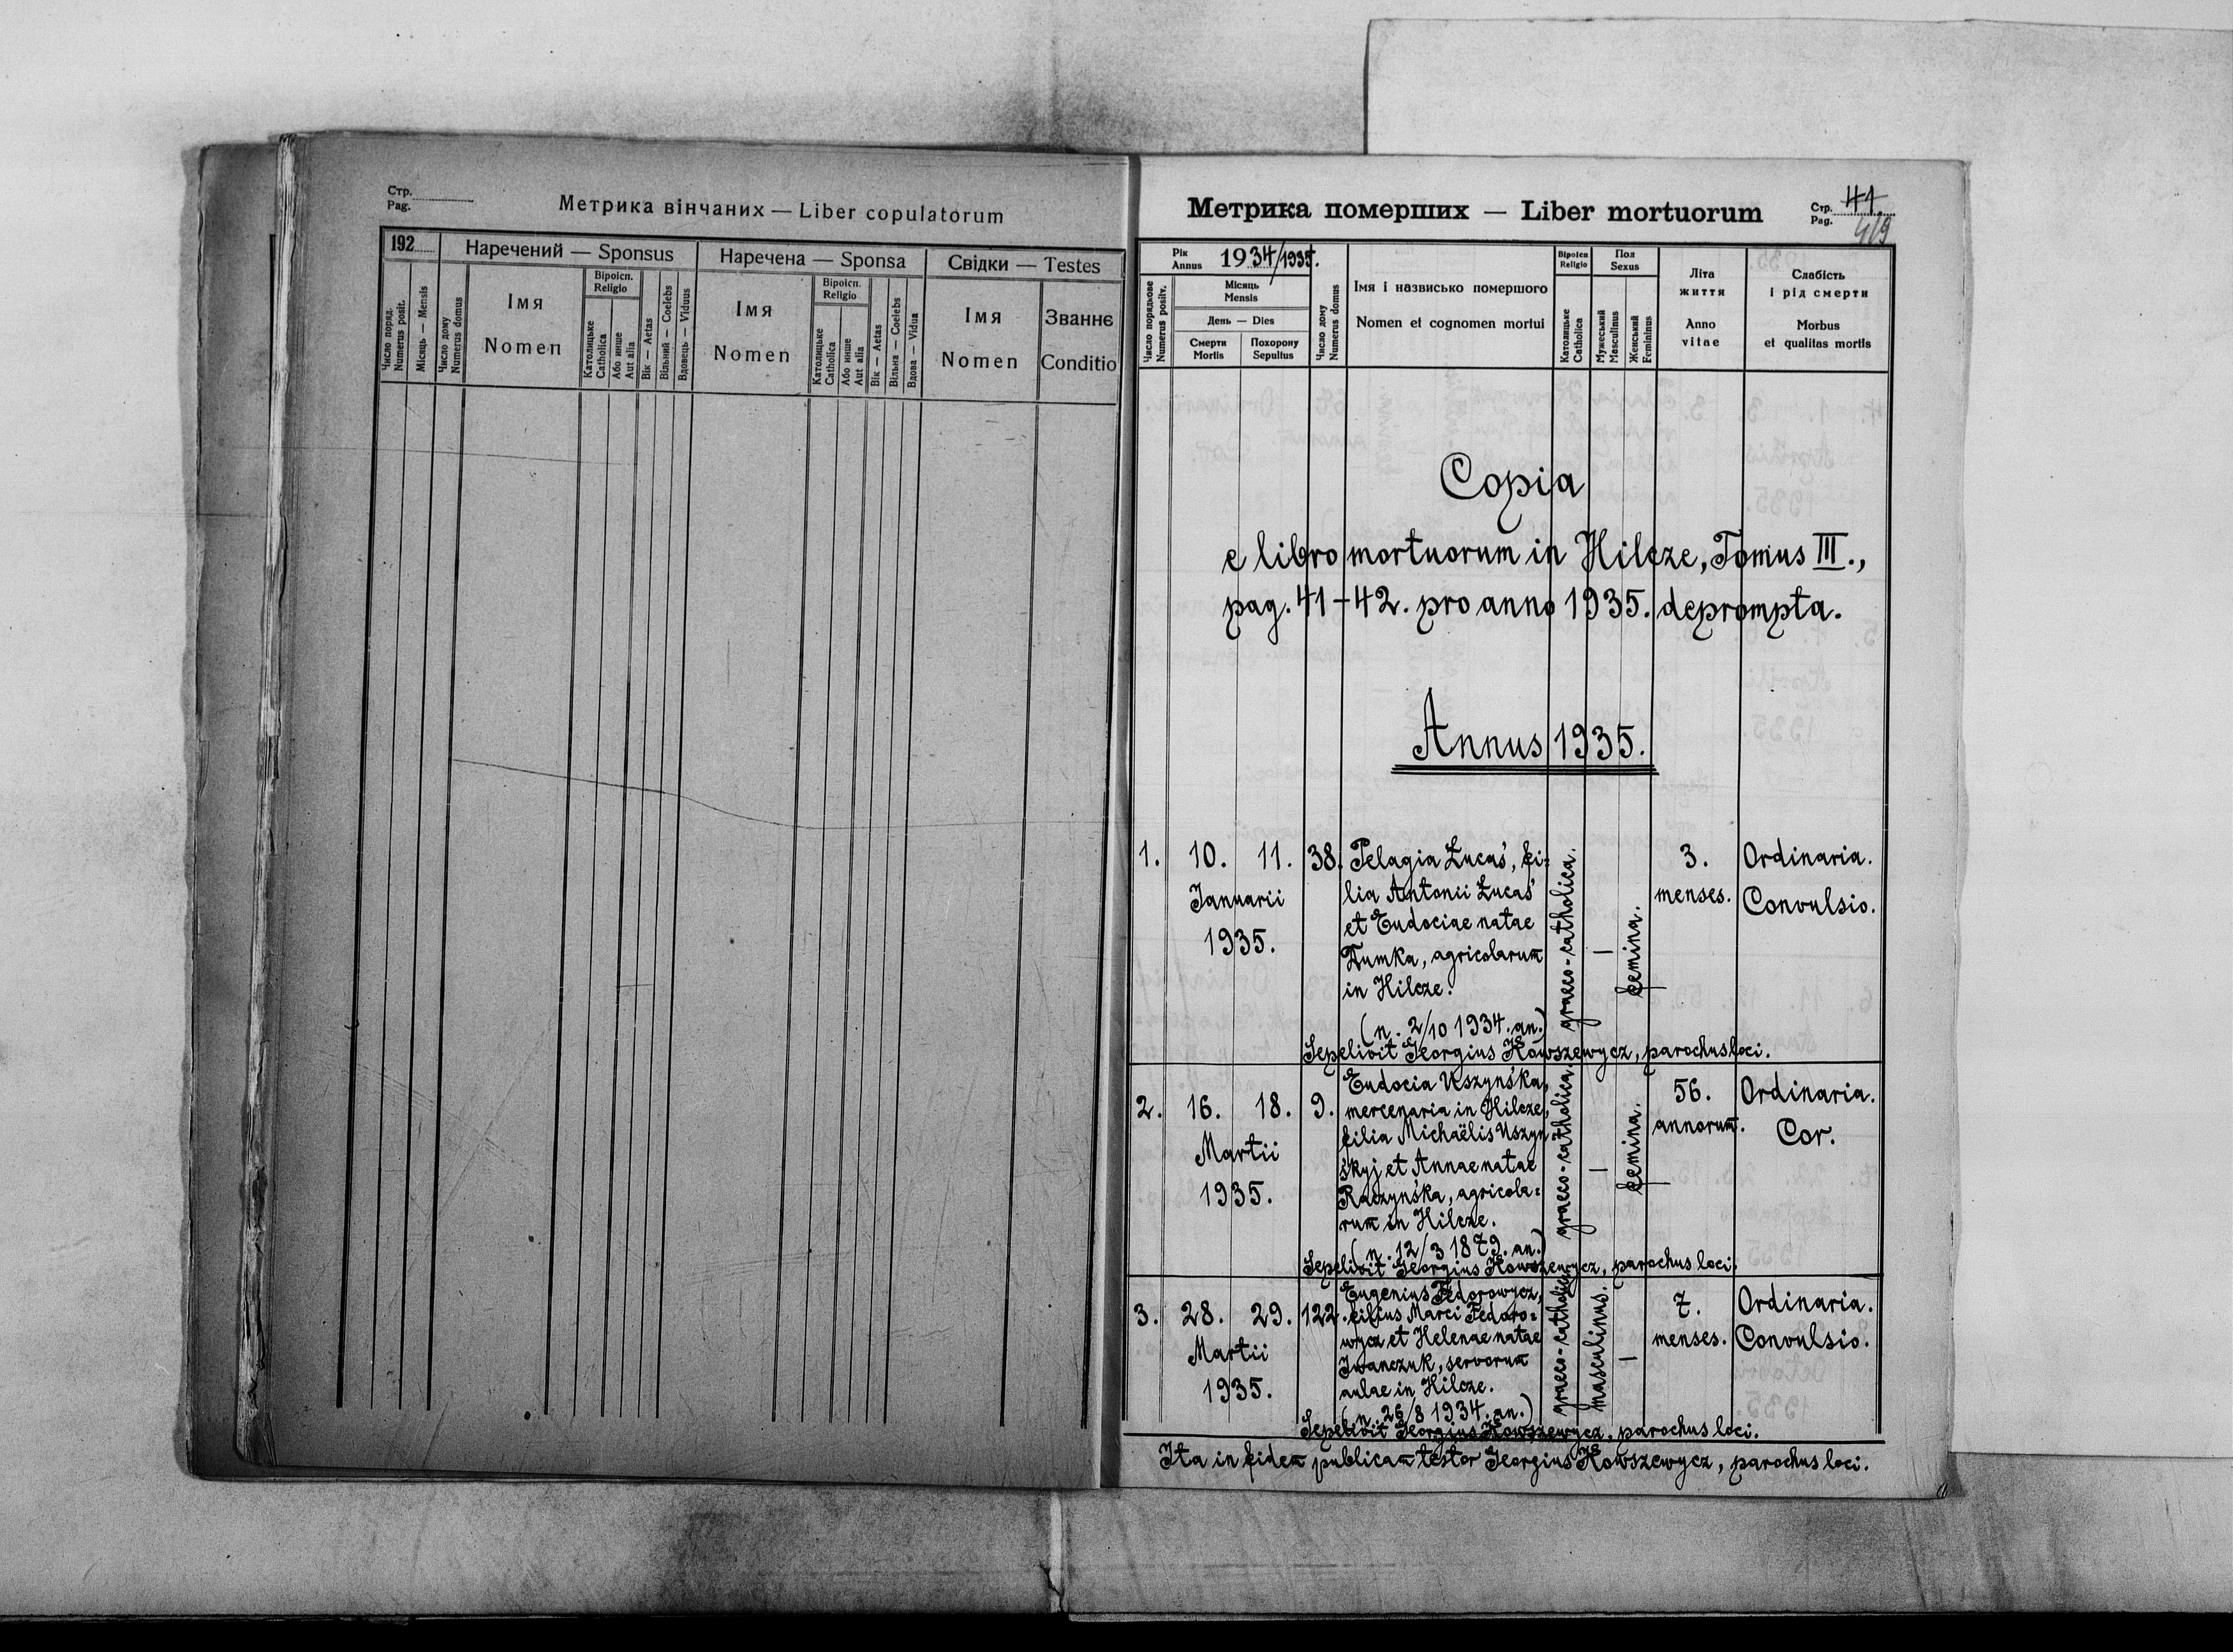 Стр.
Pag.
Метрика вінчаних — Liber copulatorum
192
Наречений — Sponsus
Наречена — Sponsa
Свідки — Testes
Число поряд.
Numerus posit.
Місяць — Mensis
Число дому
Numerus domus
Імя
Nomen
Віроісп.
Religio
Католицьке
Catholica
Або инше
Aut alia
Вік — Aetas
Вільний — Coelebs
Вдовець — Viduus
Імя
Nomen
Віроісп.
Religio
Католицьке
Catholica
Або инше
Aut alia
Вік — Aetas
Вільна — Coelebs
Вдова — Vidua
Імя
Nomen
Званнє
Conditio
Метрика померших — Liber mortuorum
Стр.
Pag.
41.
Число порядкове
Numerus positv.
Рік
Annus
1934/1935.
Місяць
Mensis
День — Dies
Смерти
Mortis
Похорону
Sepultus
Число дому
Numerus domus
Імя і назвисько помершого
Nomen et cognomen mortui
Віроісп
Religio
Католицьке
Catholica
Пол
Sexus
Мужеський
Masculinus
Женський
Femininus
Літа
життя
Anno
vitae
Слабість
і рід смерти
Morbus
et qualitas mortis
Copia
e libro mortuorum in Hilcze, Tomus III.,
pag. 41-42. pro anno 1935. deprompta.
Annus 1935.
1. 10. 11. 38. Pelagia Łucaś, fi=
lia Antonii Łucaś
et Eudociae natae
Kumka, agricolarum
in Hilcze.
(n. 2/10 1934. an.)
Januarii
1935.
graeco-catholica.
—
femina.
3.
menses.
Ordinaria.
Convulsio.
Sepelivit Georgius Kowszewycz, parochus loci.
2. 16. 18. 9. Eudocia Uszynśka,
mercenaria in Hilcze,
filia Michaëlis Uszyn=
śkyj et Annae natae
Raczynśka, agricola=
rum in Hilcze.
(n. 12/3 1879. an.)
Martii
1935.
graeco-catholica.
—
femina.
56.
annorum.
Ordinaria.
Cor.
Sepelivit Georgius Kowszewycz, parochus loci.
3. 28. 29. 122. Eugenius Fedorowycz,
filius Marci Fedoro=
wycz et Helenae natae
Iwanczuk, servorum
aulae in Hilcze.
(n. 26/8 1934. an.)
Martii
1935.
graeco-catholica
masculinus.
—
7.
menses.
Ordinaria.
Convulsio.
Sepelivit Georgius Kowszewycz, parochus loci.
Ita in fidem publicam testor Georgius Kowszewycz, parochus loci.